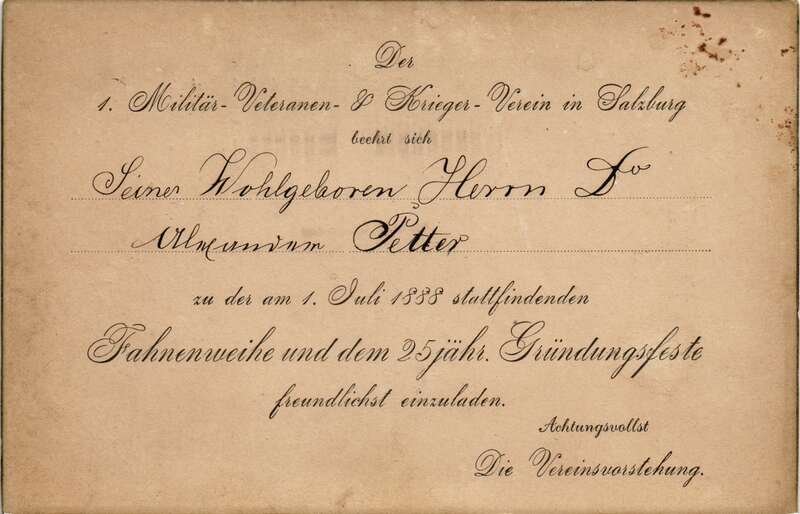 Der
1. Militär-Veteranen- & Krieger-Verein in Salzburg
beehrt sich
Seiner Wohlgeboren Herrn Dr
Alexander Petter
zu der am 1. Juli 1888 stattfindenden
Fahnenweihe und dem 25jähr. Gründungsfeste
freundlichst einzuladen.
Achtungsvollst
Die Vereinsvorstehung.